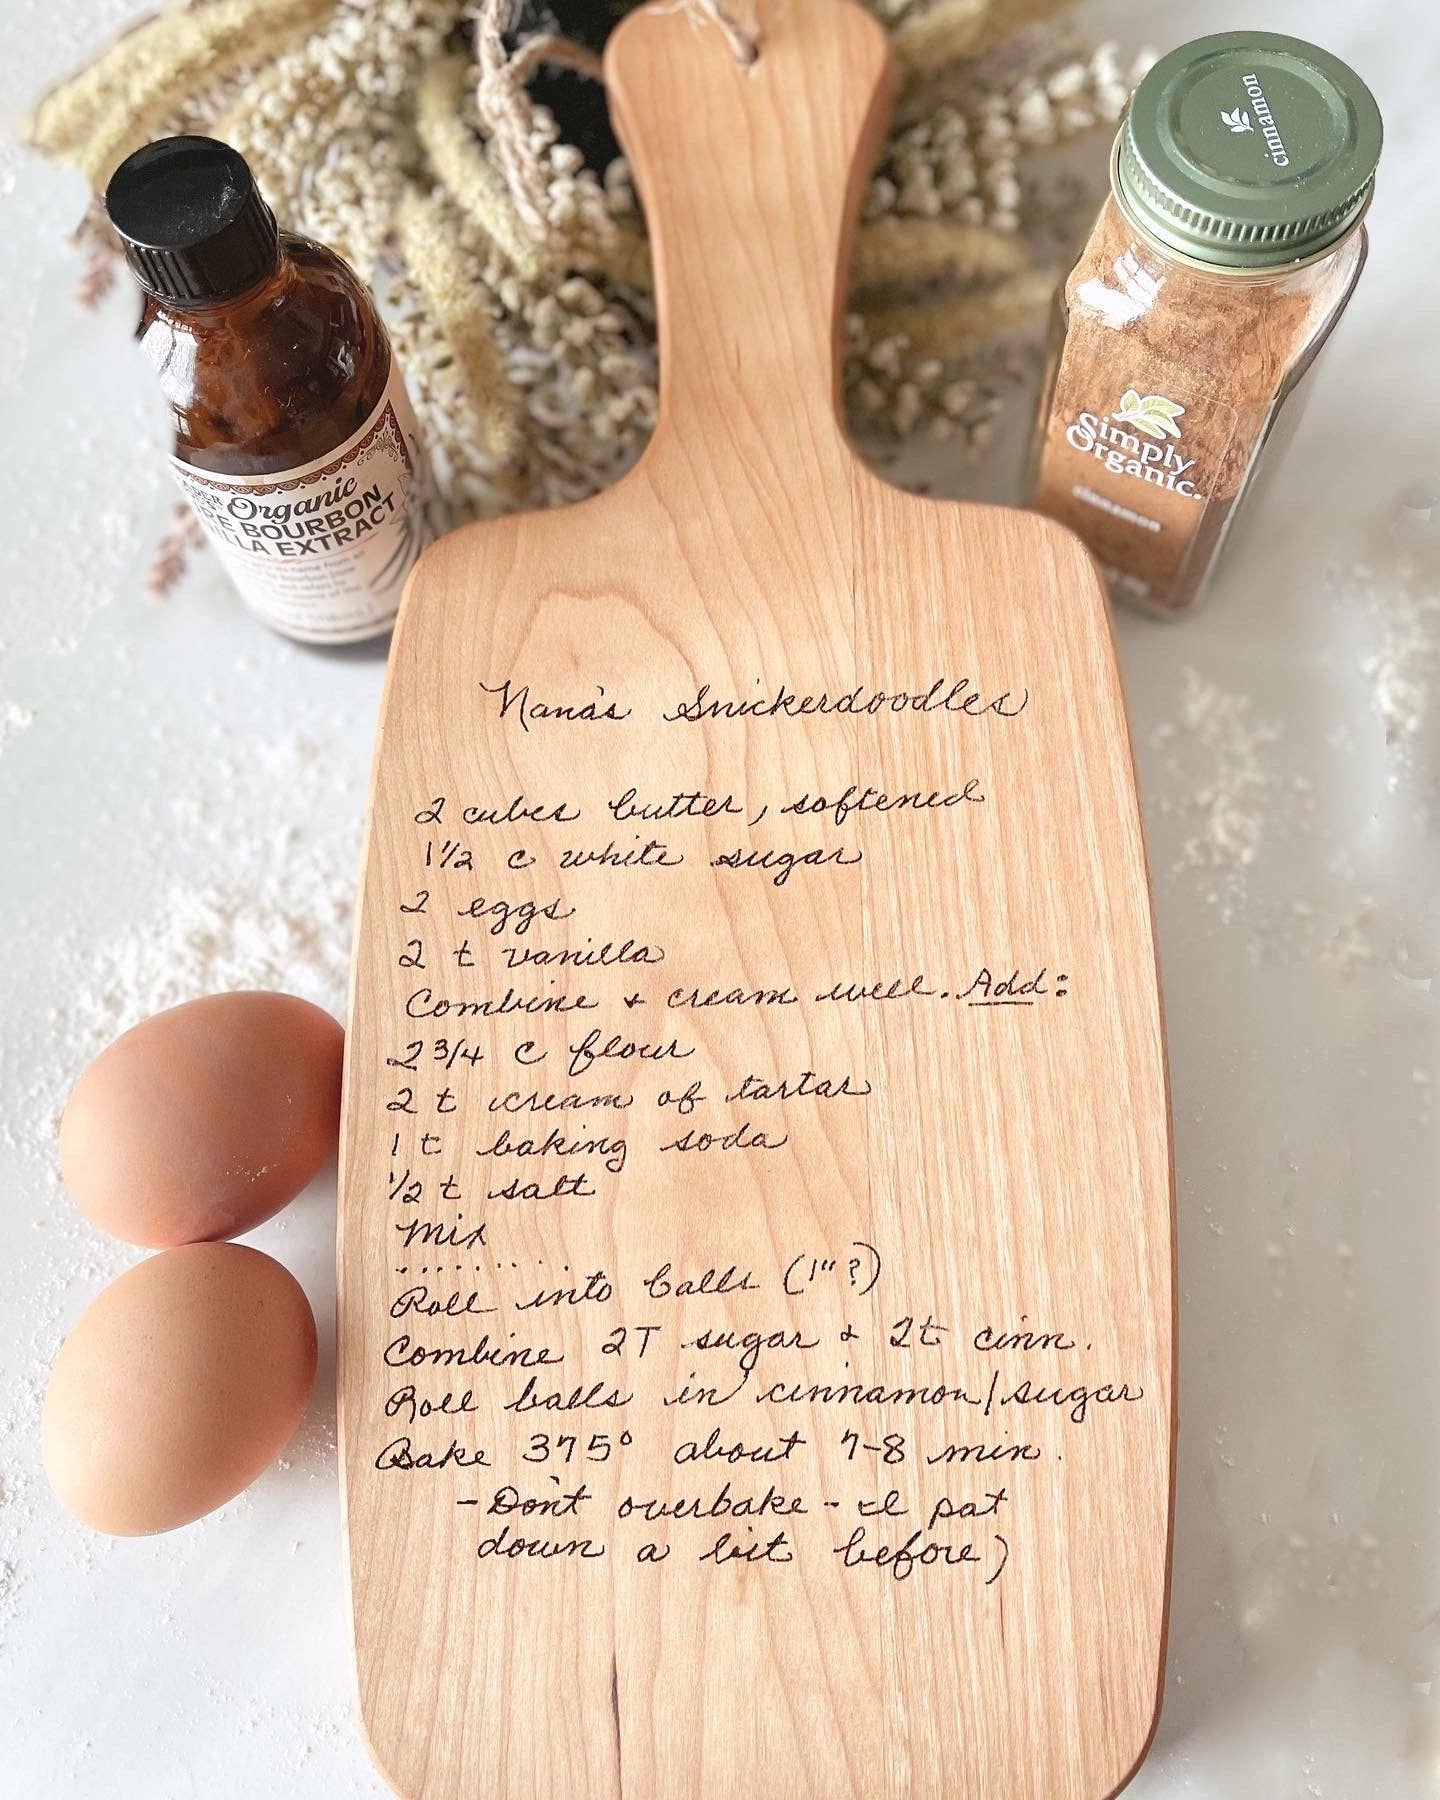 cinnamon
Simply
Organic.
cinnamon
Organic
BOURBON
EXTRACT
Nana's Snickerdoodles
2 cubes butter, softened
1 1/2 c white sugar
2 eggs
2 t vanilla
Combine + cream well. Add:
2 3/4 c flour
2 t cream of tartar
1 t baking soda
1/2 t salt
Mix
........
Roll into balls (1" ?)
Combine 2T sugar + 2t cinn.
Roll balls in cinnamon/sugar
Bake 375° about 7-8 min.
- Don't overbake - I pat
down a bit before)